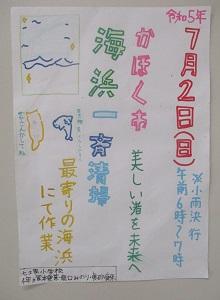 令和5年
7月2日(日)
午前6時〜7時
※小雨決行
美しい渚を未来へ
かほく市
海浜一斉清掃
最寄りの海浜
にて作業